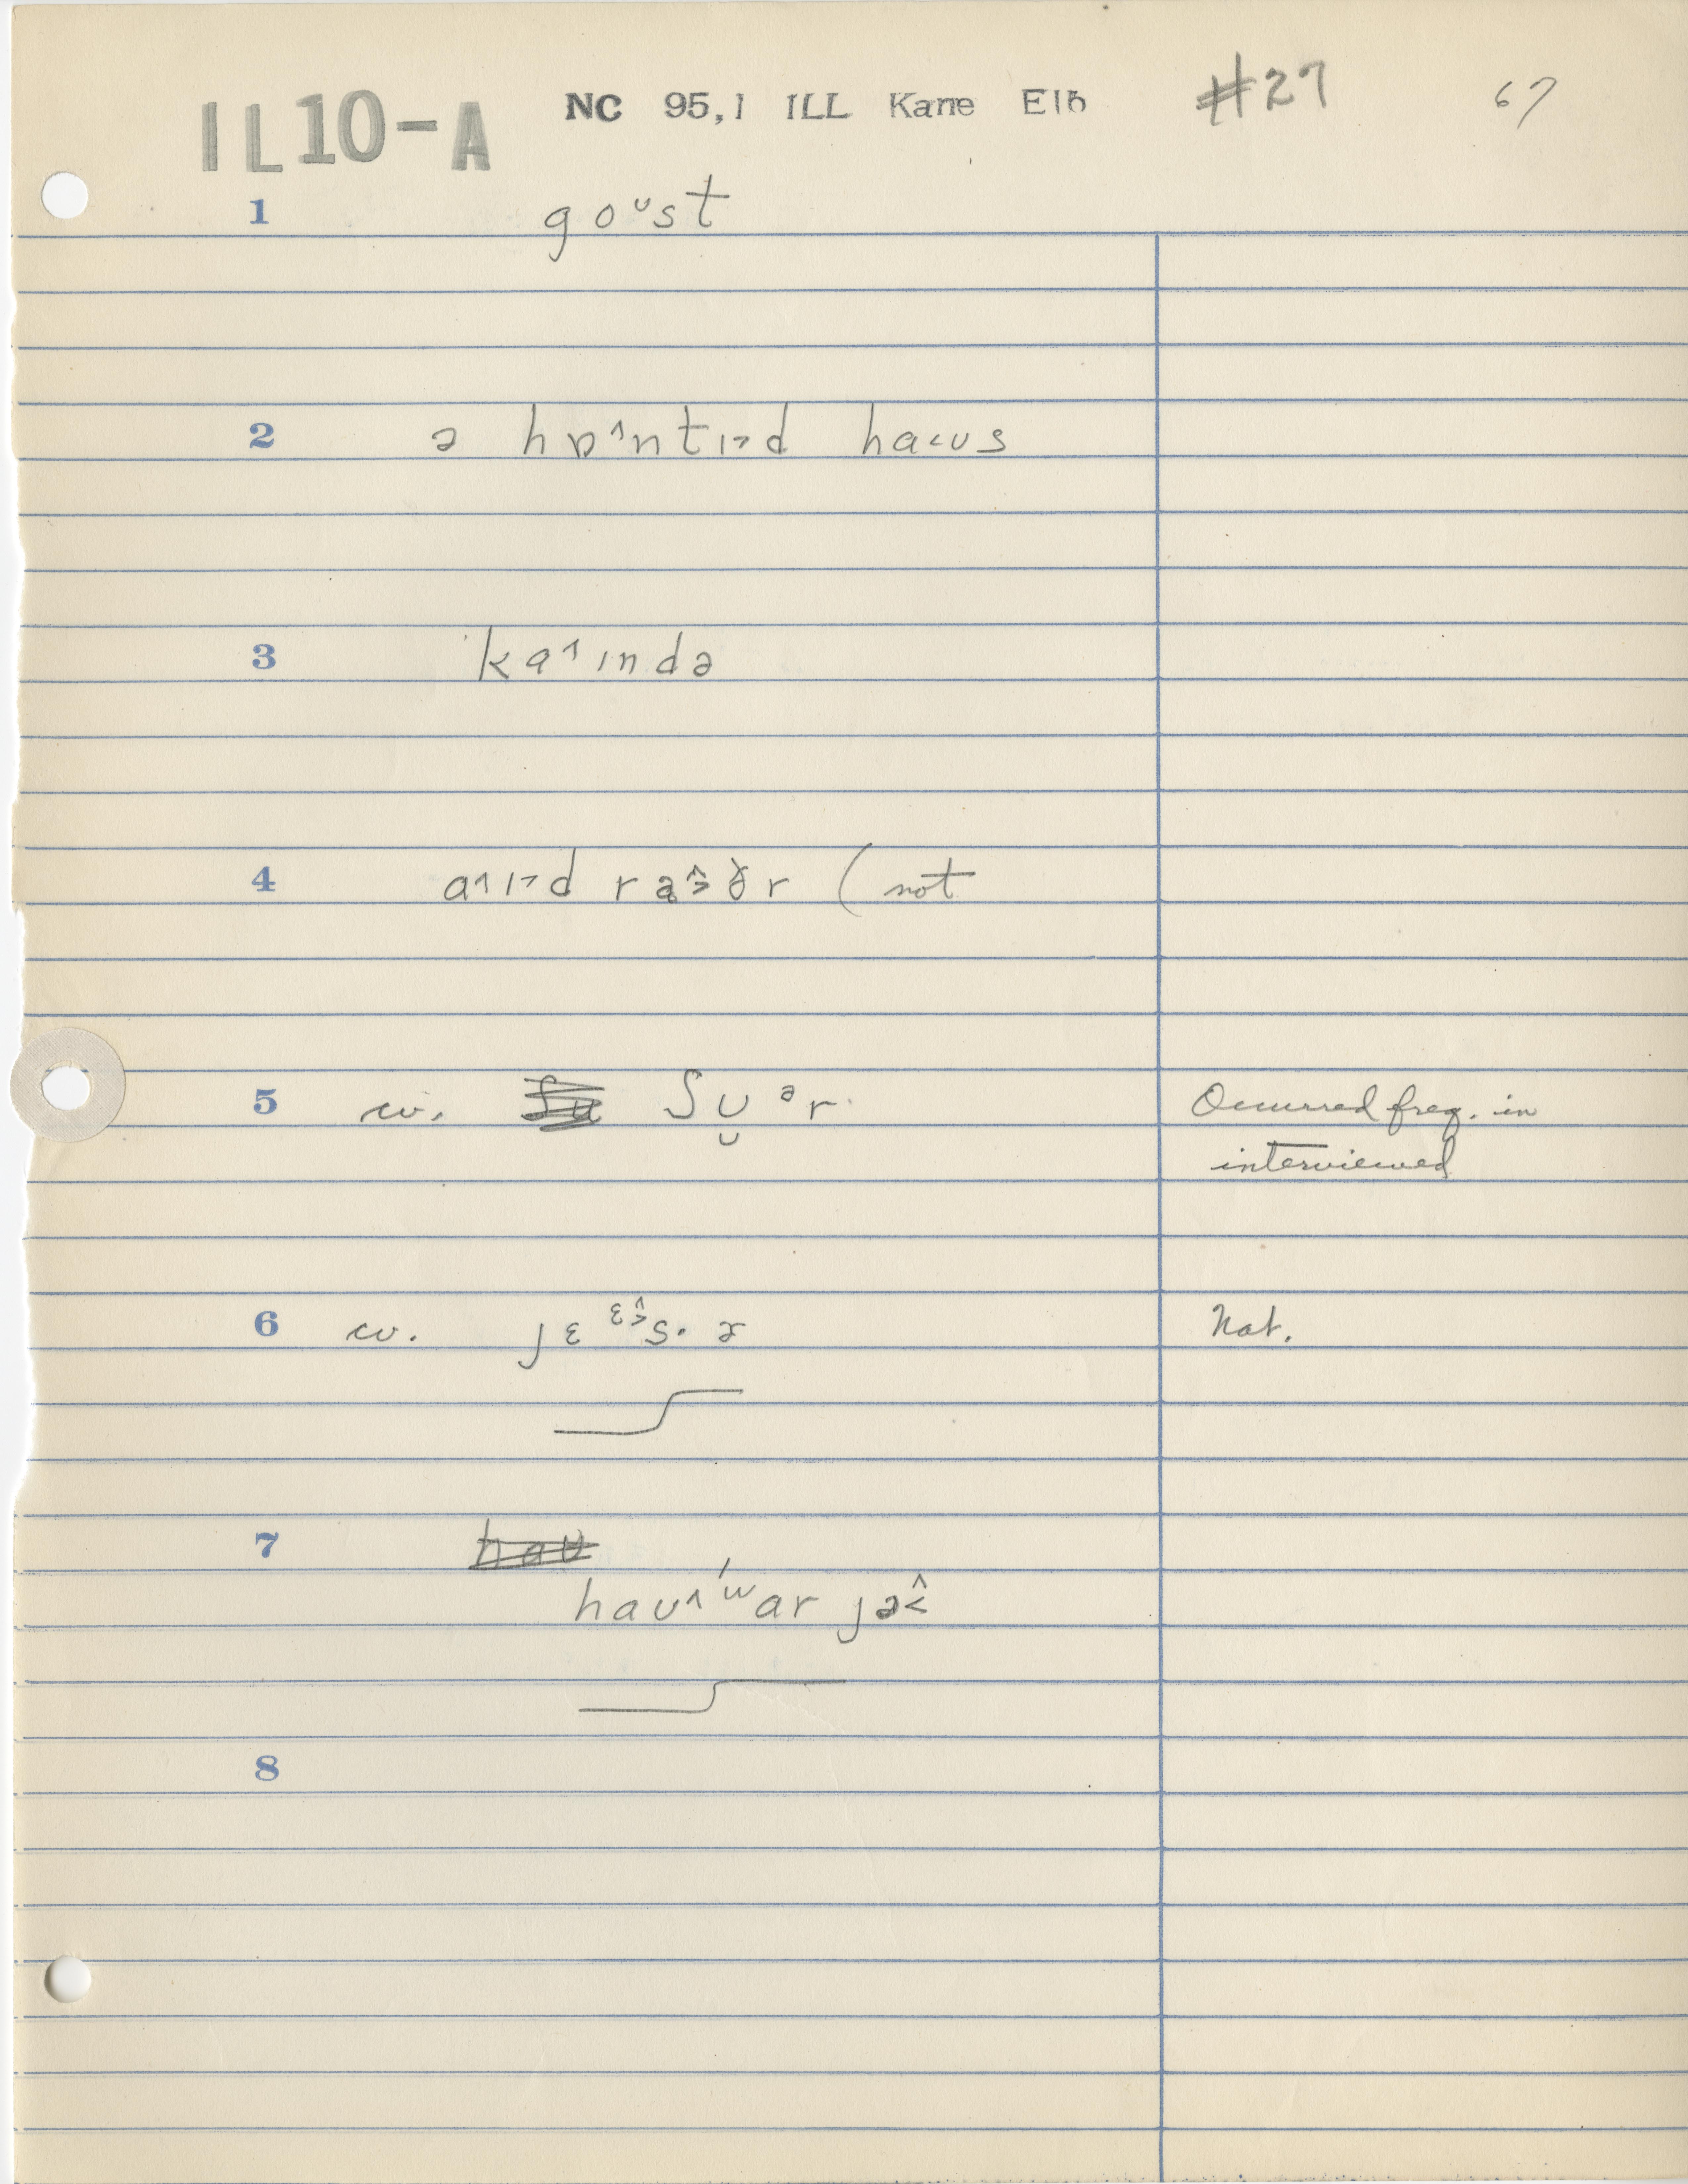 IL10-A NC 95,1 ILL Kane Elb #27 67
1 goᶷst
2 ə hɒ^ntɪ>d ha<ʊs
3 ka^ɪndə
4 a^ɪ>d raðər (not
5 cv. ʃʊ̬ᵊr Occurred freq. in
interviewed
6 cv. jɛᵋs· ɚ Nat.
7 hau
haʊ^ʷar jə
8